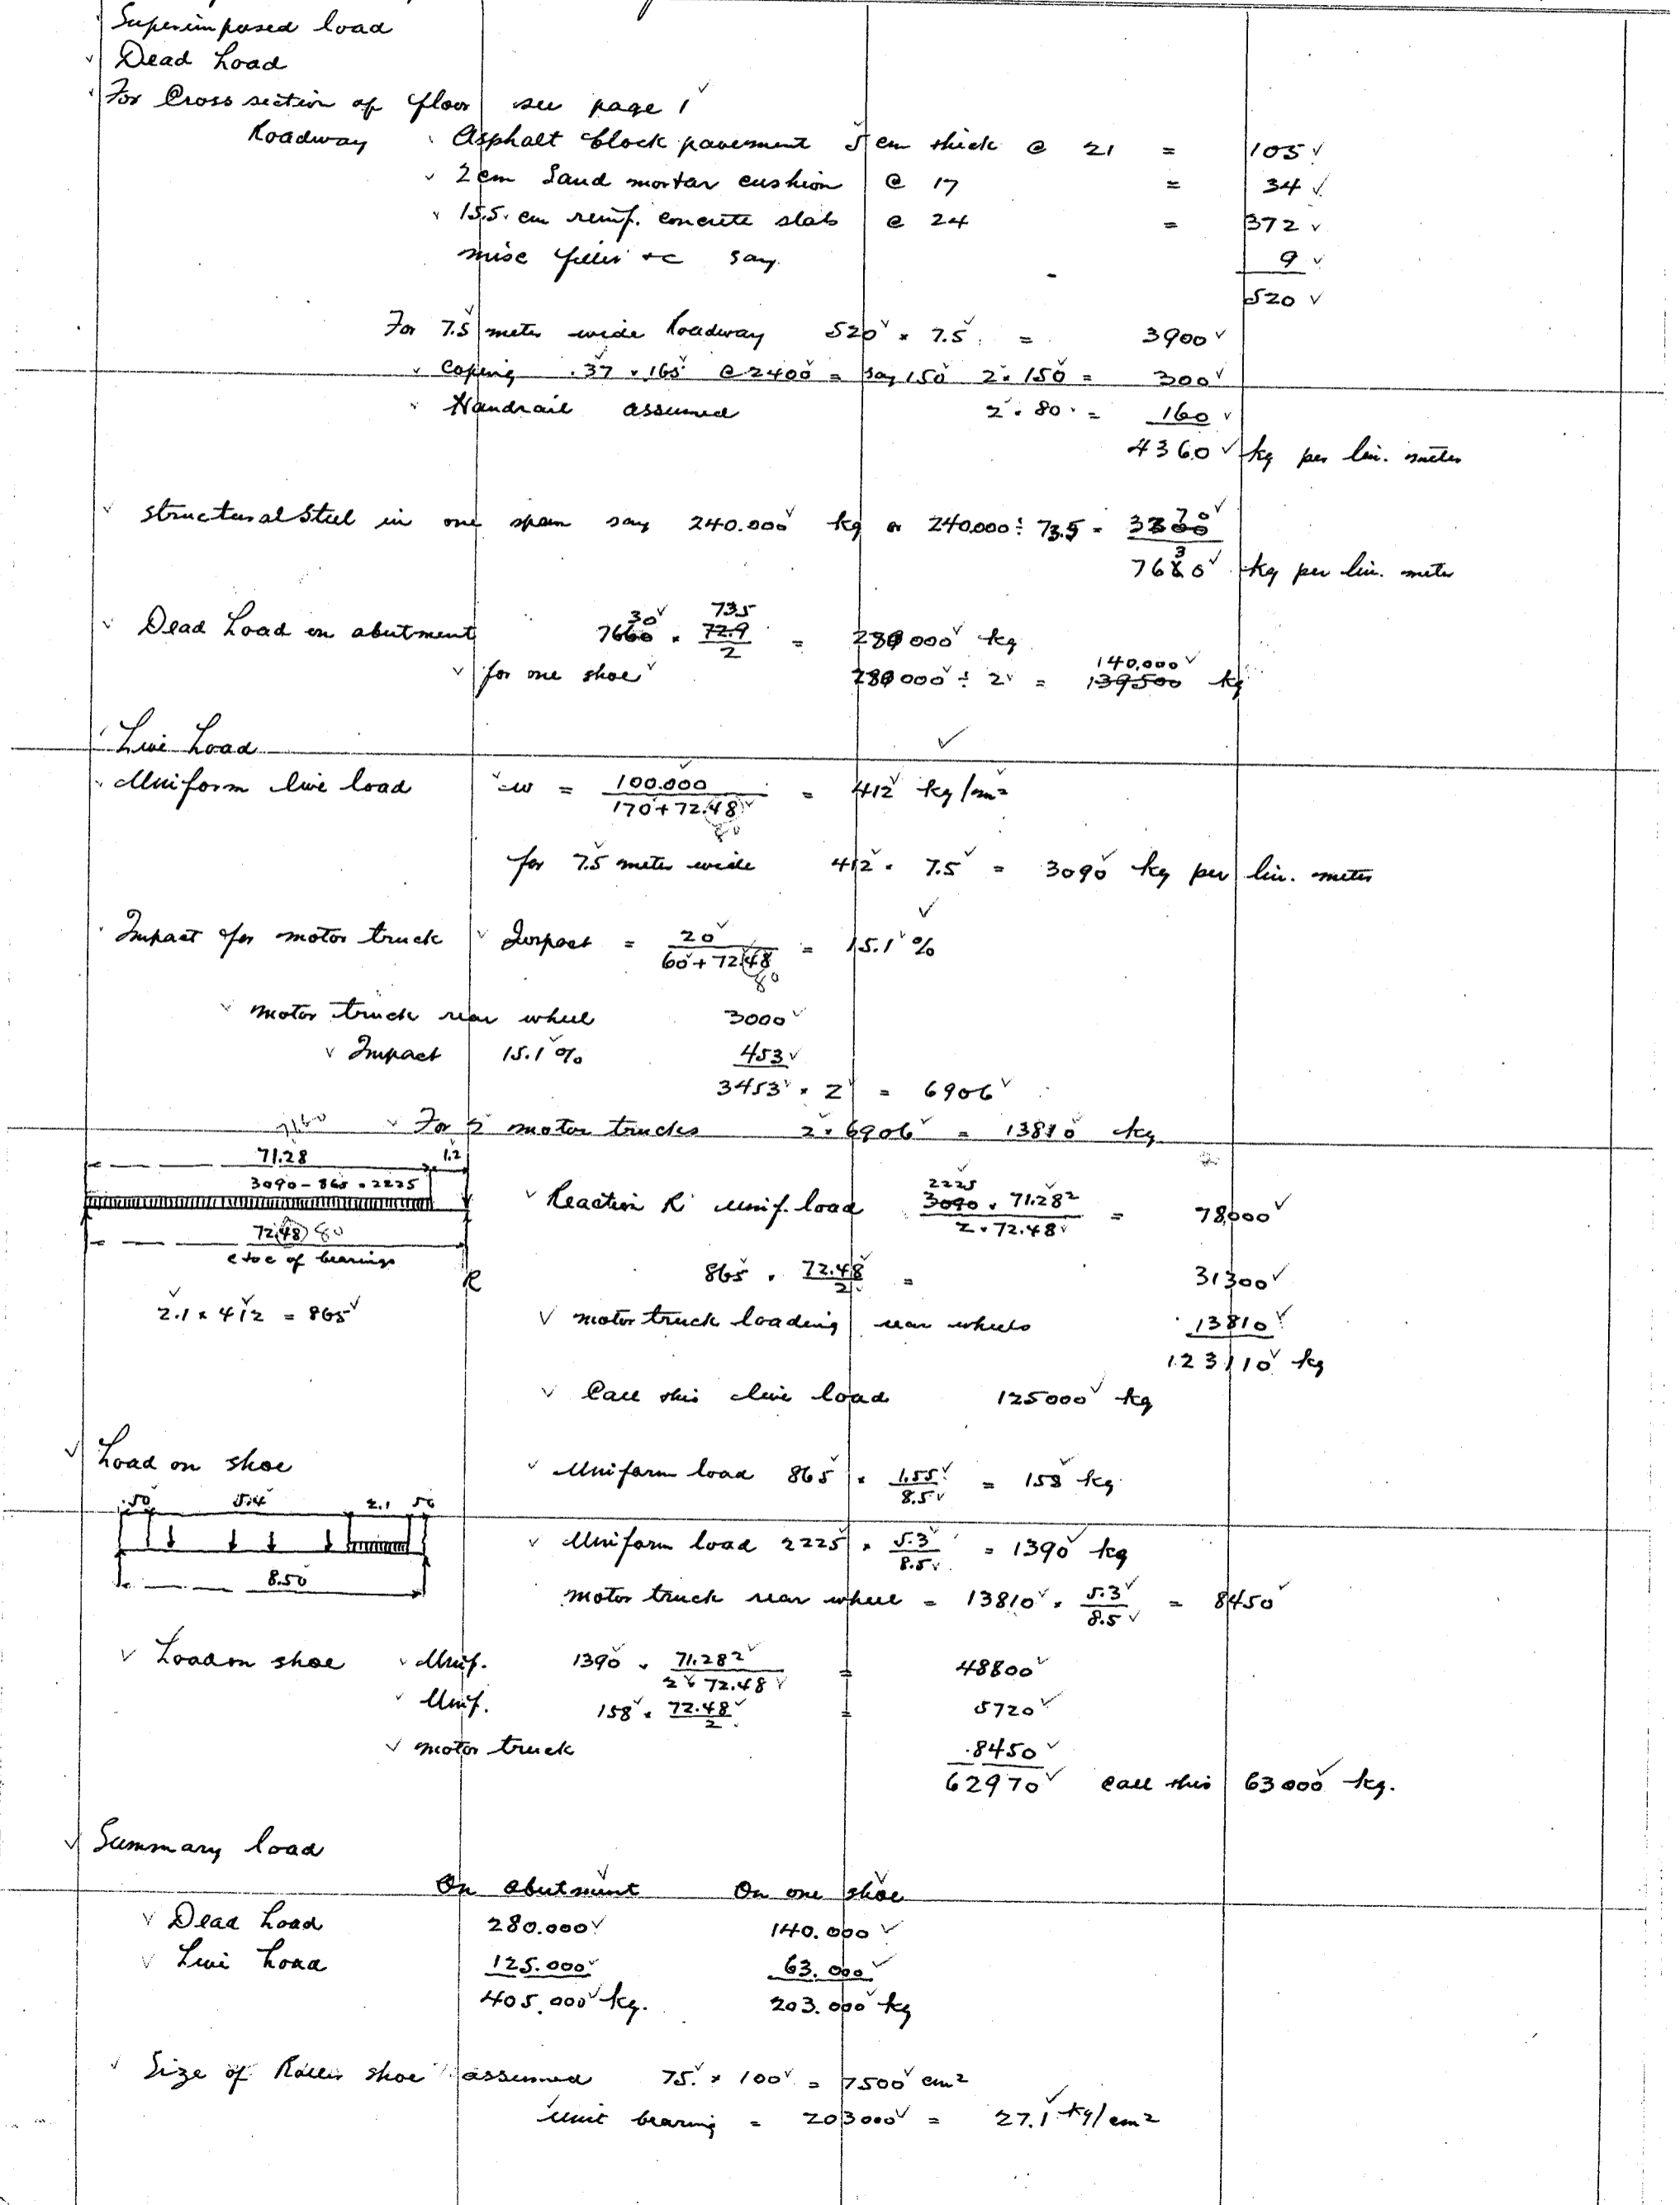 Superimposed load
Dead Load
For Cross section of floor see page 1
Roadway Asphalt block pavement 5 cm thick @ 21 = 105
2 cm Sand mortar cushion @ 17 = 34
15.5 cm reinf. concrete slab @ 24 = 372
misc filler &c say 9
520
For 7.5 meter wide Roadway 520 × 7.5 = 3900
Coping .37 × .165 @ 2400 = say 150 2 × 150 = 300
Handrail assumed 2 × 80 = 160
4360 kg per lin. meter
Structural Steel in one span say 240.000 kg or 240.000 ÷ 73.5 = 3270
7630 kg per lin. meter
Dead Load on abutment 7630 × 73.5/2 = 280000 kg
for one shoe 280000 ÷ 2 = 140,000 kg
Live Load
Uniform live load w = 100.000/170+72.48 = 412 kg/m²
80
for 7.5 meter wide 412 × 7.5 = 3090 kg per lin. meter
Impact for motor truck Impact = 20/60+72.48 = 15.1 %
80
motor truck rear wheel 3000
Impact 15.1 % 453
3453 × 2 = 6906
For 2 motor trucks 2 × 6906 = 13810 kg
7160
71.28 1.2
3090 - 865 = 2225
72.48 80
c to c of bearings
R
2.1 × 412 = 865
Reaction R unif. load 2225 × 71.28²/2 × 72.48 = 78000
865 × 72.48/2 = 31300
motor truck loading rear wheels 13810
123110 kg
Call this live load 125000 kg
Load on shoe
.50 5.4 2.1 50
8.50
Uniform load 865 × 1.55/8.5 = 158 kg
Uniform load 2225 × 5.3/8.5 = 1390 kg
motor truck rear wheel = 13810 × 5.3/8.5 = 8450
Load on shoe Unif. 1390 × 71.28²/2 × 72.48 = 48800
Unif. 158 × 72.48/2 = 5720
motor truck 8450
62970 call this 63000 kg.
Summary load
On abutment On one shoe
Dead Load 280.000 140.000
Live Load 125.000 63.000
405.000 kg. 203.000 kg
Size of Roller shoe assumed 75 × 100 = 7500 cm²
Unit bearing = 203000 = 27.1 kg/cm²